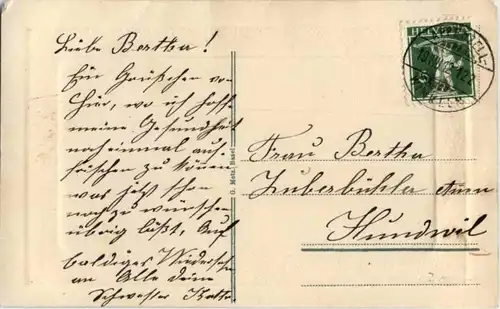 Liebe Bertha!
Ein Grüßchen von
hier, wo ich hoffe
meine Gesundheit
noch einmal auf-
frischen zu können
was jetzt schon
noch zu wünschen
übrig läßt, Auf
baldiges Wiedersehen
an Alle deine
Schwester Käthe
G. Metz, Basel
HELVETIA
5
Frau Bertha
Zuberbühler
Hundwil